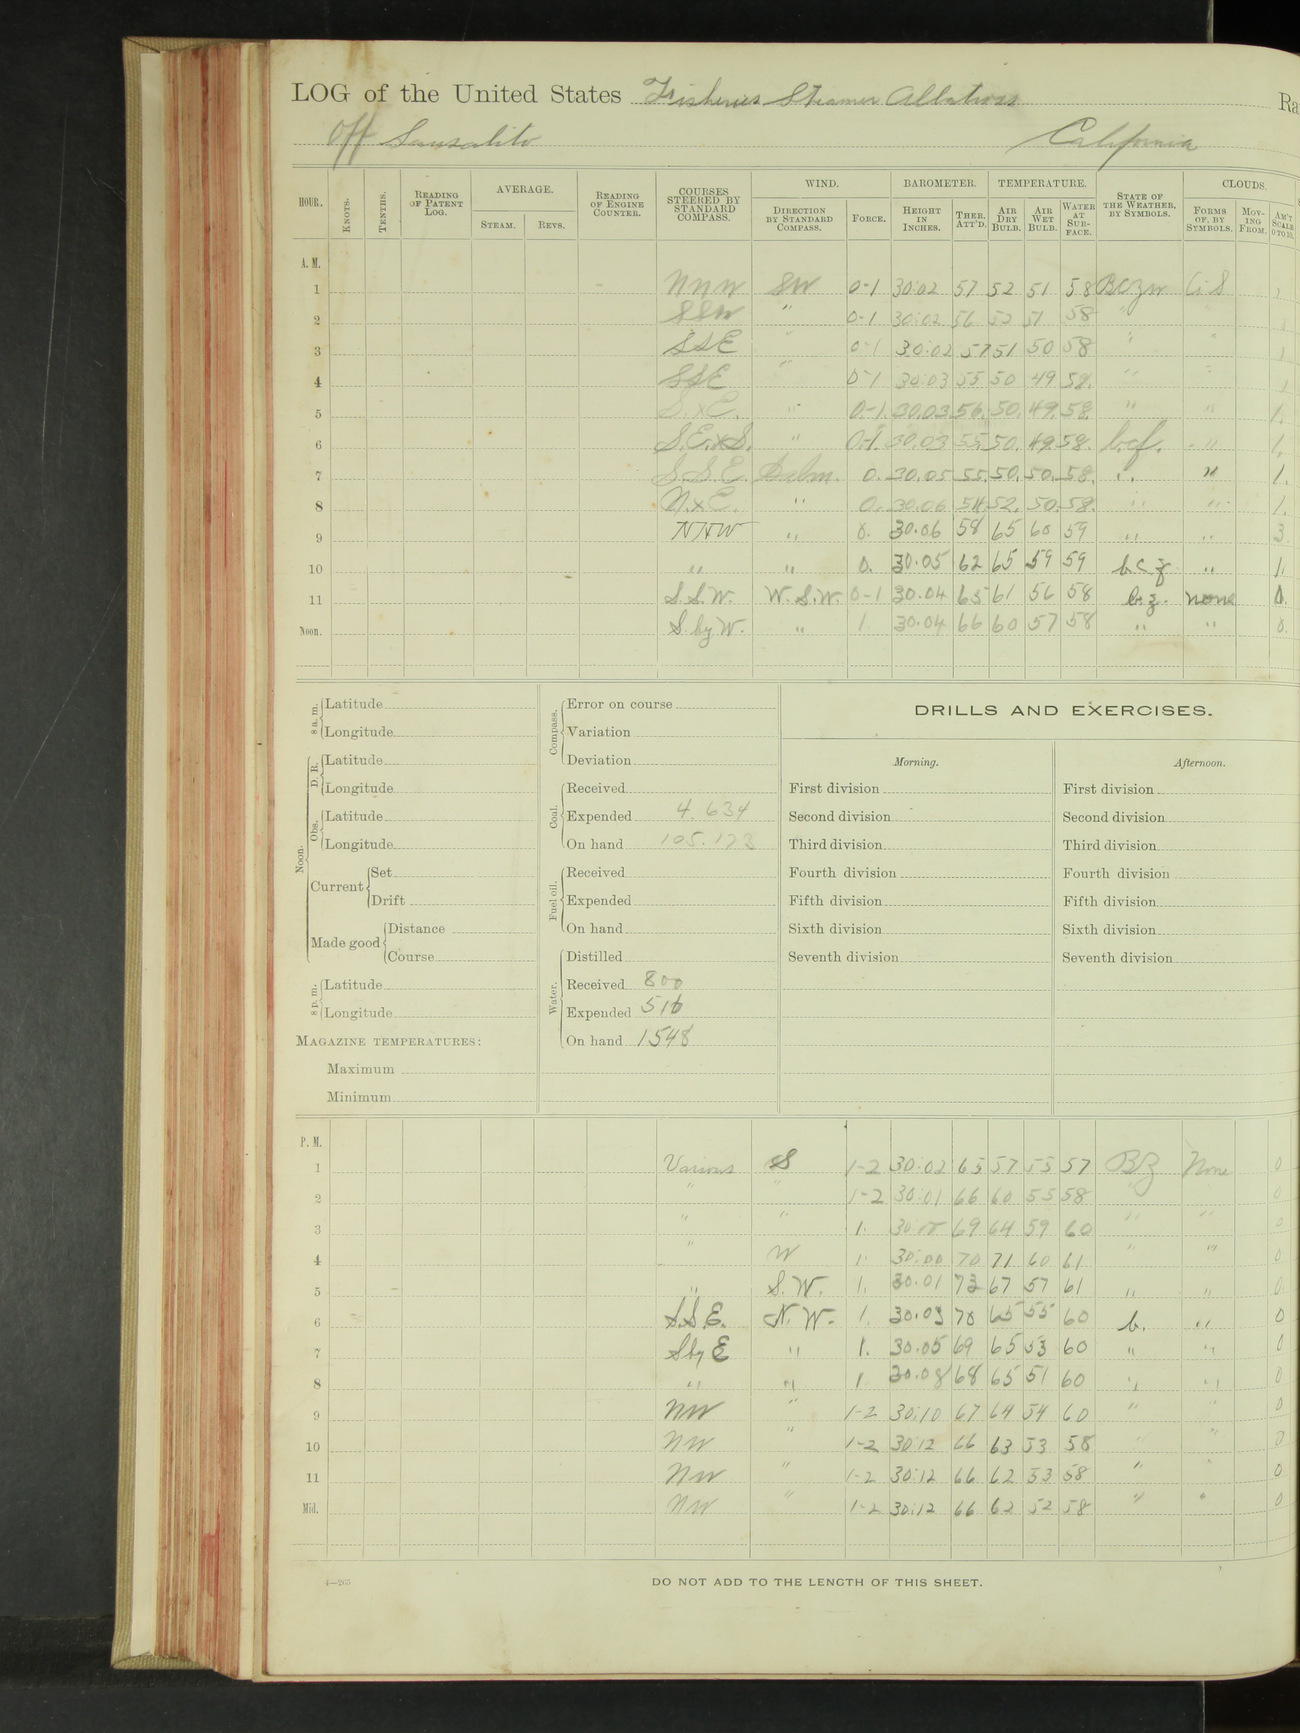 LOG of the United States Fisheries Steamer Albatross Ra
Off Sausalito California
HOUR. KNOTS. TENTHS. READING OF PATENT LOG. AVERAGE. STEAM. REVS. READING OF ENGINE COUNTER. COURSES STEERED BY STANDARD COMPASS. WIND. DIRECTION BY STANDARD COMPASS. FORCE. BAROMETER. HEIGHT IN INCHES. THER. ATT'D. TEMPERATURE. AIR DRY BULB. AIR WET BULB. WATER AT SURFACE. STATE OF THE WEATHER, BY SYMBOLS. CLOUDS. FORMS OF, BY SYMBOLS. MOVING FROM. AM'T SCALE 0 TO 10.
A. M.
1 NNW SW 0-1 30.02 57 52 51 58 BCZM Ci S 1
2 SSW " 0-1 30.02 56 52 51 58 " " 1
3 SSE " 0-1 30.02 57 51 50 58 " " 1
4 SSE " 0-1 30.03 55 50 49 58. " " 1
5 S.xE. " 0-1. 30.03 56. 50. 49. 58. " " 1.
6 S.E.xS. " 0-1. 30.03 55. 50. 49. 58. b.c.f. " 1.
7 S.S.E. Calm. 0. 30.05 55. 50. 50. 58. " " 1.
8 N.xE. " 0. 30.06 54. 52. 50. 58. " " 1.
9 NNW " 0. 30.06 58 65 60 59 " " 3.
10 " " 0. 30.05 62 65 59 59 b.c.z. " 1.
11 S.S.W. W.S.W. 0-1 30.04 65 61 56 58 b.z. none 0.
Noon. S. by W. " 1. 30.04 66 60 57 58 " " 0.
8 a. m. Latitude
Longitude
Noon. D. R. Latitude
Longitude
Obs. Latitude
Longitude
Current Set
Drift
Made good Distance
Course
8 p. m. Latitude
Longitude
MAGAZINE TEMPERATURES:
Maximum
Minimum
Compass. Error on course
Variation
Deviation
Coal. Received
Expended 4.634
On hand 105.173
Fuel oil. Received
Expended
On hand
Water. Distilled
Received 800
Expended 516
On hand 1548
DRILLS AND EXERCISES.
Morning. Afternoon.
First division First division
Second division Second division
Third division Third division
Fourth division Fourth division
Fifth division Fifth division
Sixth division Sixth division
Seventh division Seventh division
P. M.
1 Various S 1-2 30.02 65 57 55 57 BZ None 0
2 " " 1-2 30.01 66 60 55 58 " " 0
3 " " 1. 30.00 69 64 59 60 " " 0
4 " W 1. 30.00 70 71 60 61 " " 0
5 " S.W. 1. 30.01 73 67 57 61 " " 0.
6 S.S.E. N.W. 1. 30.03 70 65 55 60 b. " 0
7 S by E " 1. 30.05 69 65 53 60 " " 0
8 " " 1 30.08 68 65 51 60 " " 0
9 NW " 1-2 30.10 67 64 54 60 " " 0
10 NW " 1-2 30.12 66 63 53 58 " " 0
11 NW " 1-2 30.12 66 62 53 58 " " 0
Mid. NW " 1-2 30.12 66 62 52 58 " " 0
4—265
DO NOT ADD TO THE LENGTH OF THIS SHEET.